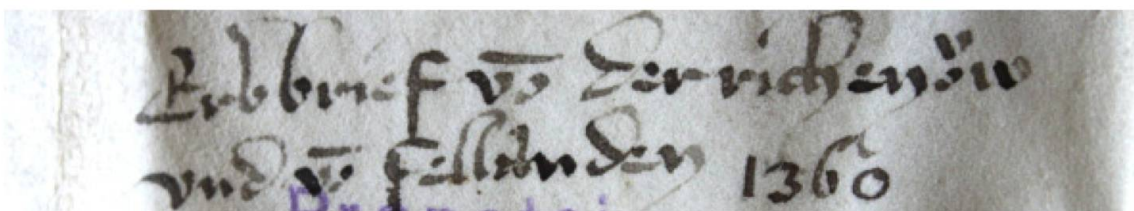 Erbbrief vō der richenow
vnd vō fellanden 1360